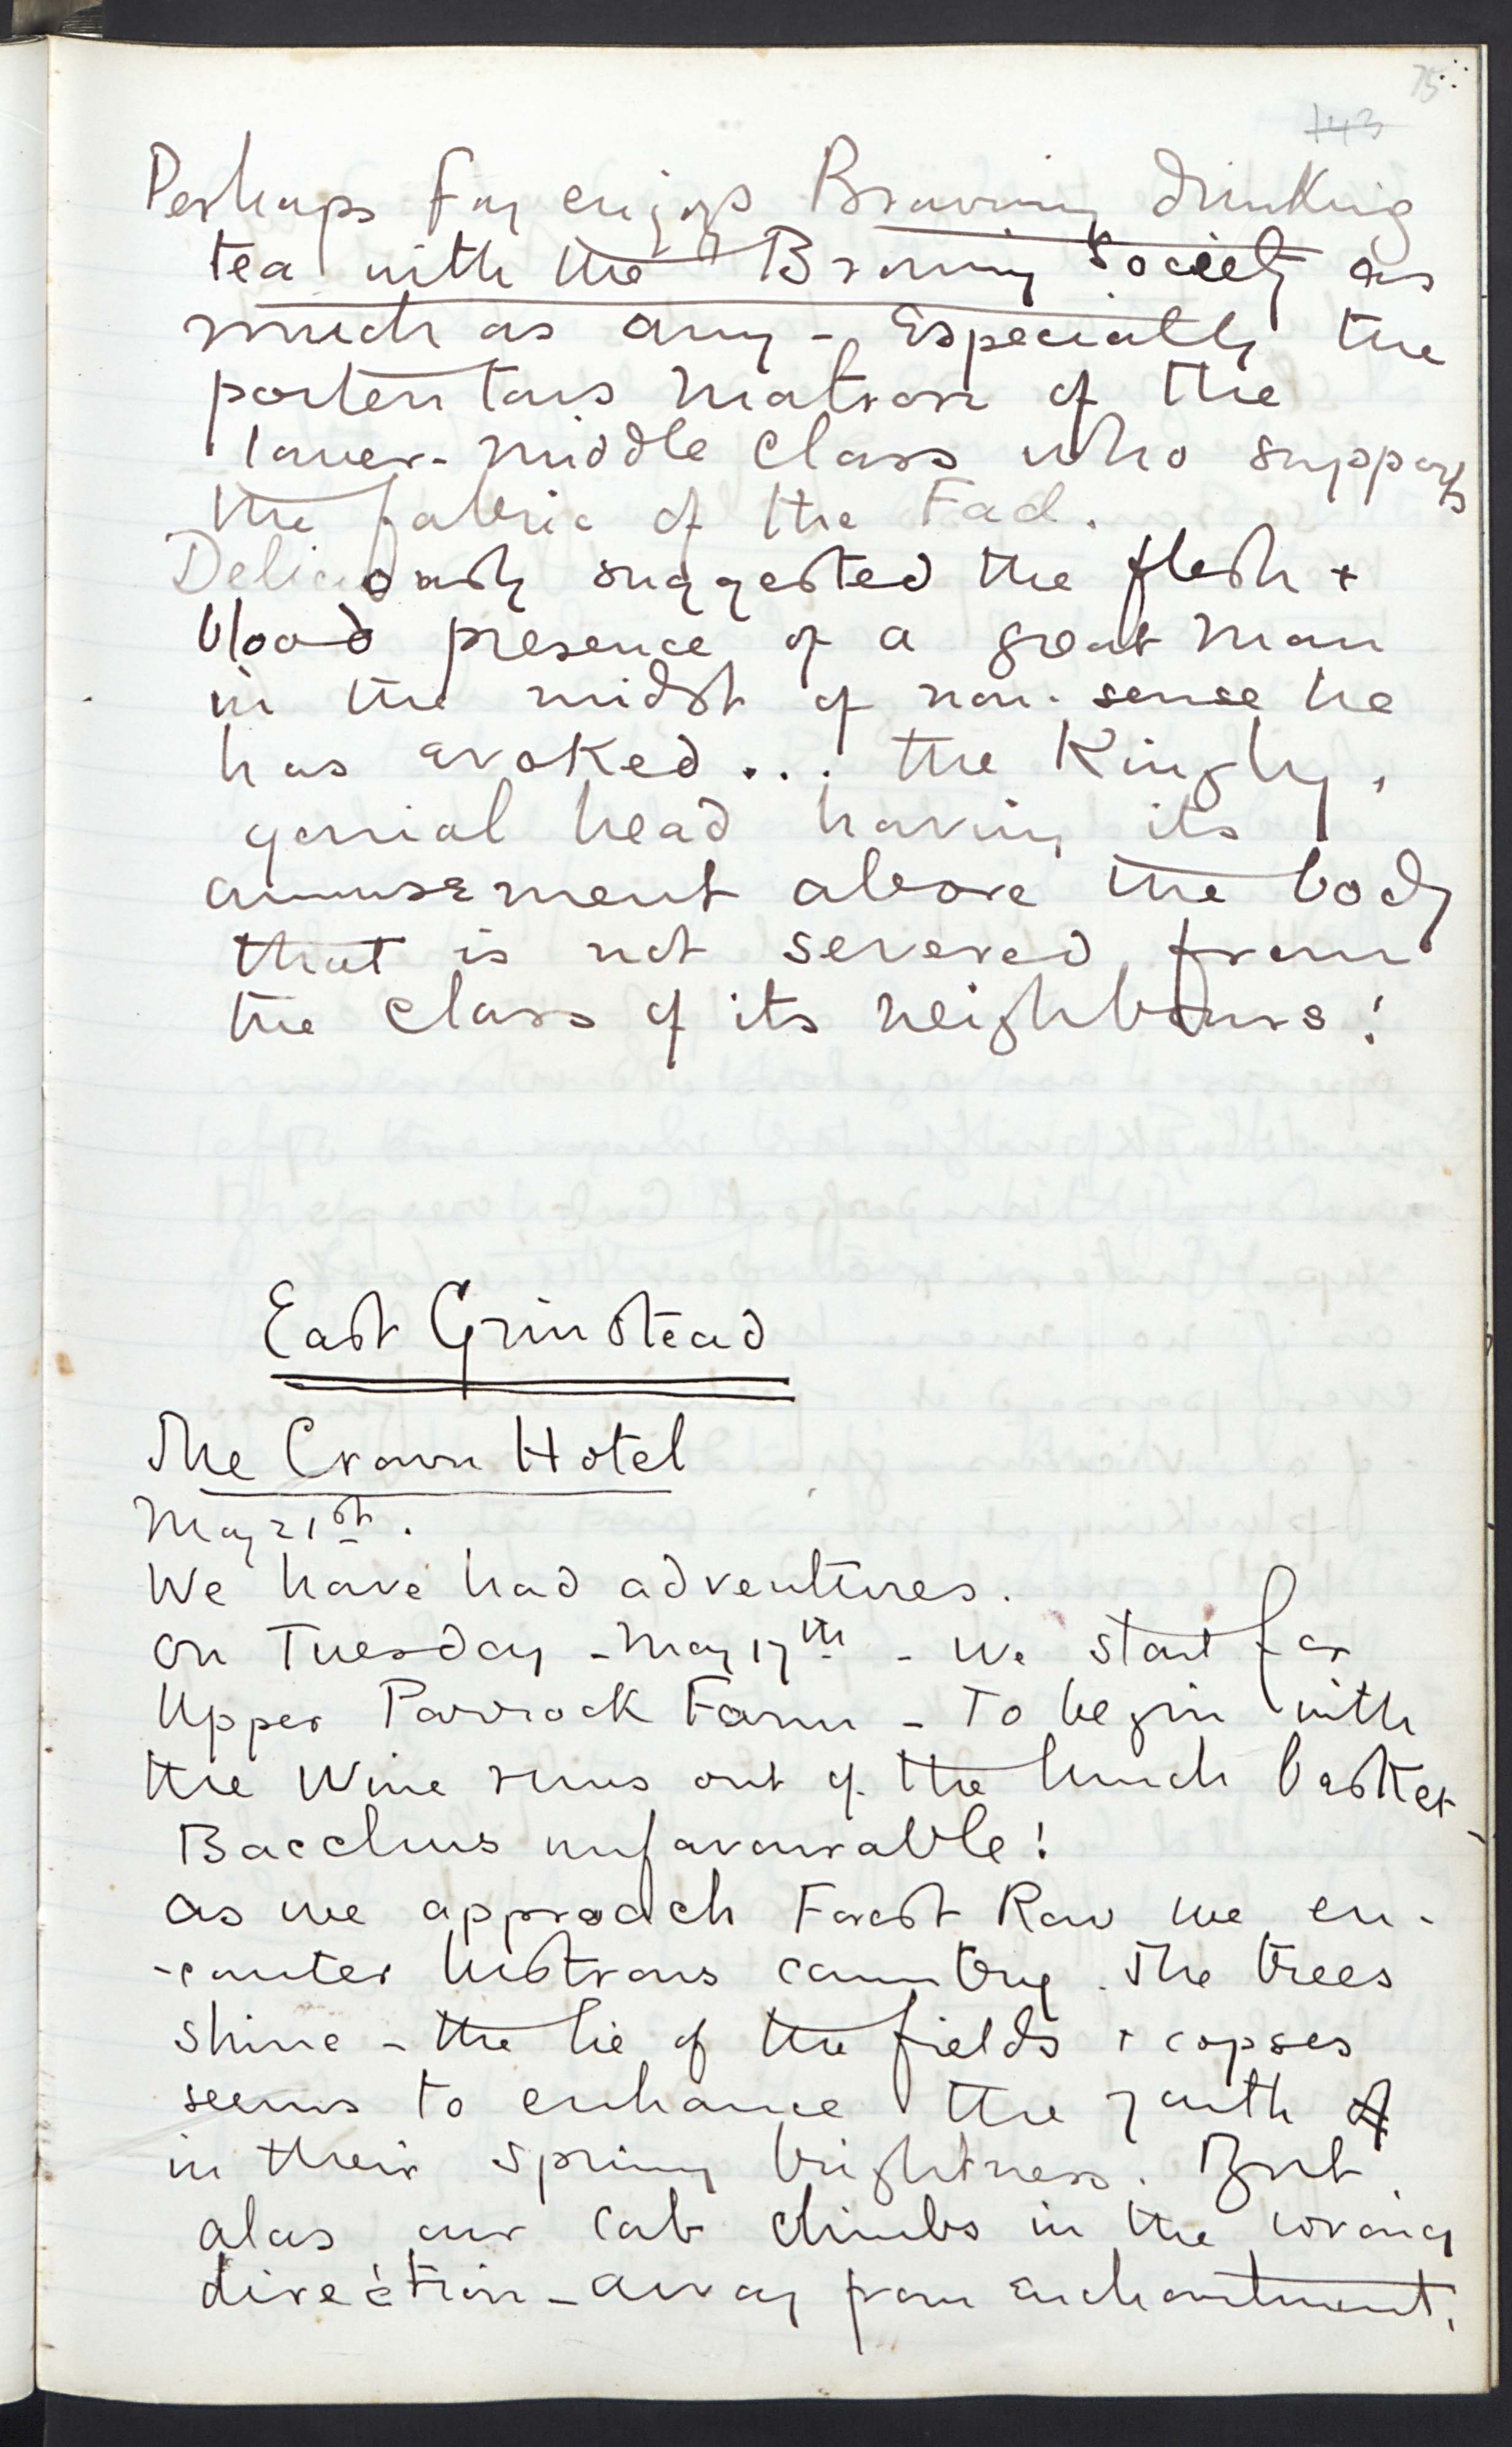 75
143
Perhaps Fay enjoys Browning drinking
tea with the Browning Society as
much as any - Especially the
portentous matron of the
lower-middle class who supports
the fabric of the Fad.
Deliciously suggested the flesh +
blood presence of a great man
in the midst of non-sense he
has evoked... the Kingly,
genial head having its
amusement above the body
that is not severed from
the class of its neighbours!
East Grinstead
The Crown Hotel
May 21st.
We have had adventures.
On Tuesday - May 17th - we start for
Upper Parrock Farm - To begin with
the Wine runs out of the lunch basket -
Bacchus unfavourable!
As we approach Forest Row we en-
-counter lustrous country. The trees
shine - the lie of the fields + copses
seems to enhance the youth of
in their spring brightness. But
alas our cab climbs in the wrong
direction - away from Enchantment.